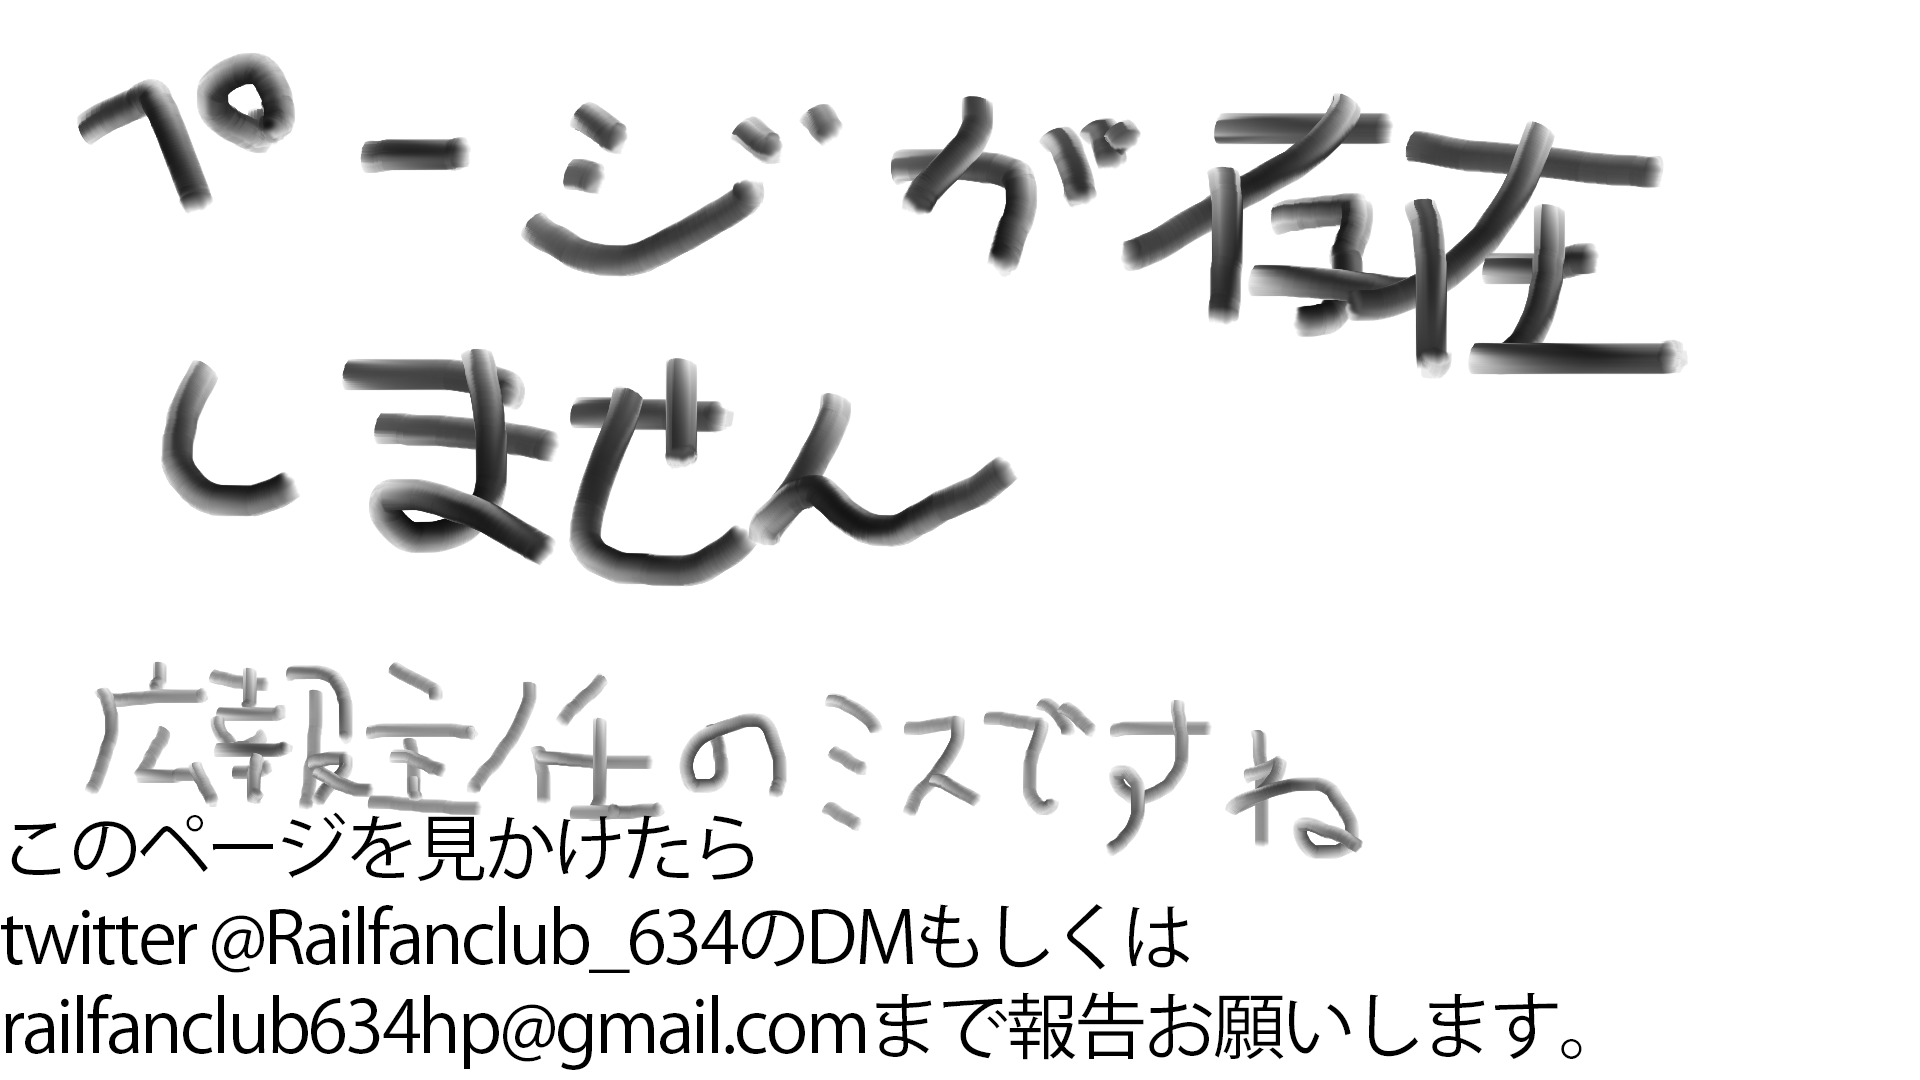 ページが存在
しません
広報主任のミスですね
このページを見かけたら
twitter @Railfanclub_634のDMもしくは
railfanclub634hp@gmail.comまで報告お願いします。